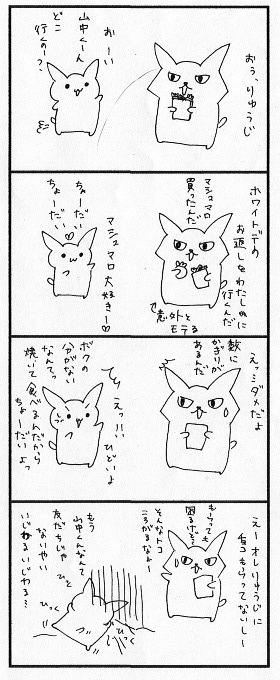 おぅ、りゅうじ
おーい
山中くーん
どこ
行くのー?
ホワイトデーの
お返しをわたしに
行くんだ
マシュマロ
買ったんだ
↑意外と
モテる
マシュマロ大好きー♡
ちょーだい♡
ちょーだい
えっダメだよ
数に
かぎりが
あるんだ
えっ!!
ひどいよ
ボクの
分がない
なんて。
焼いて食べるんだから
ちょーだいよっ
えーオレりゅうじに
チョコもらってないしー
もらっても
困るけど?
そんなトコ
ころがるなよー
もう
山中くんなんて
友だちじゃ
ないやい
いじわるいじわる…
ひっく
ひっく